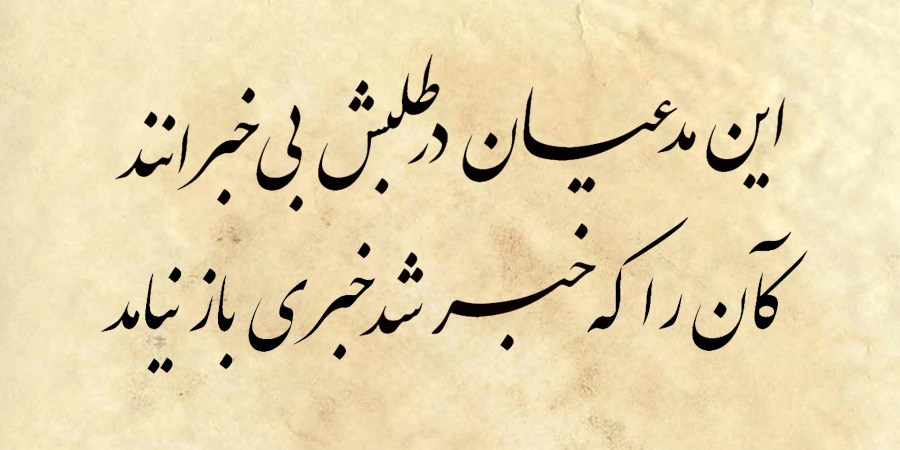 این مدعیان در طلبش بی خبرانند
کآن را که خبر شد خبری باز نیامد